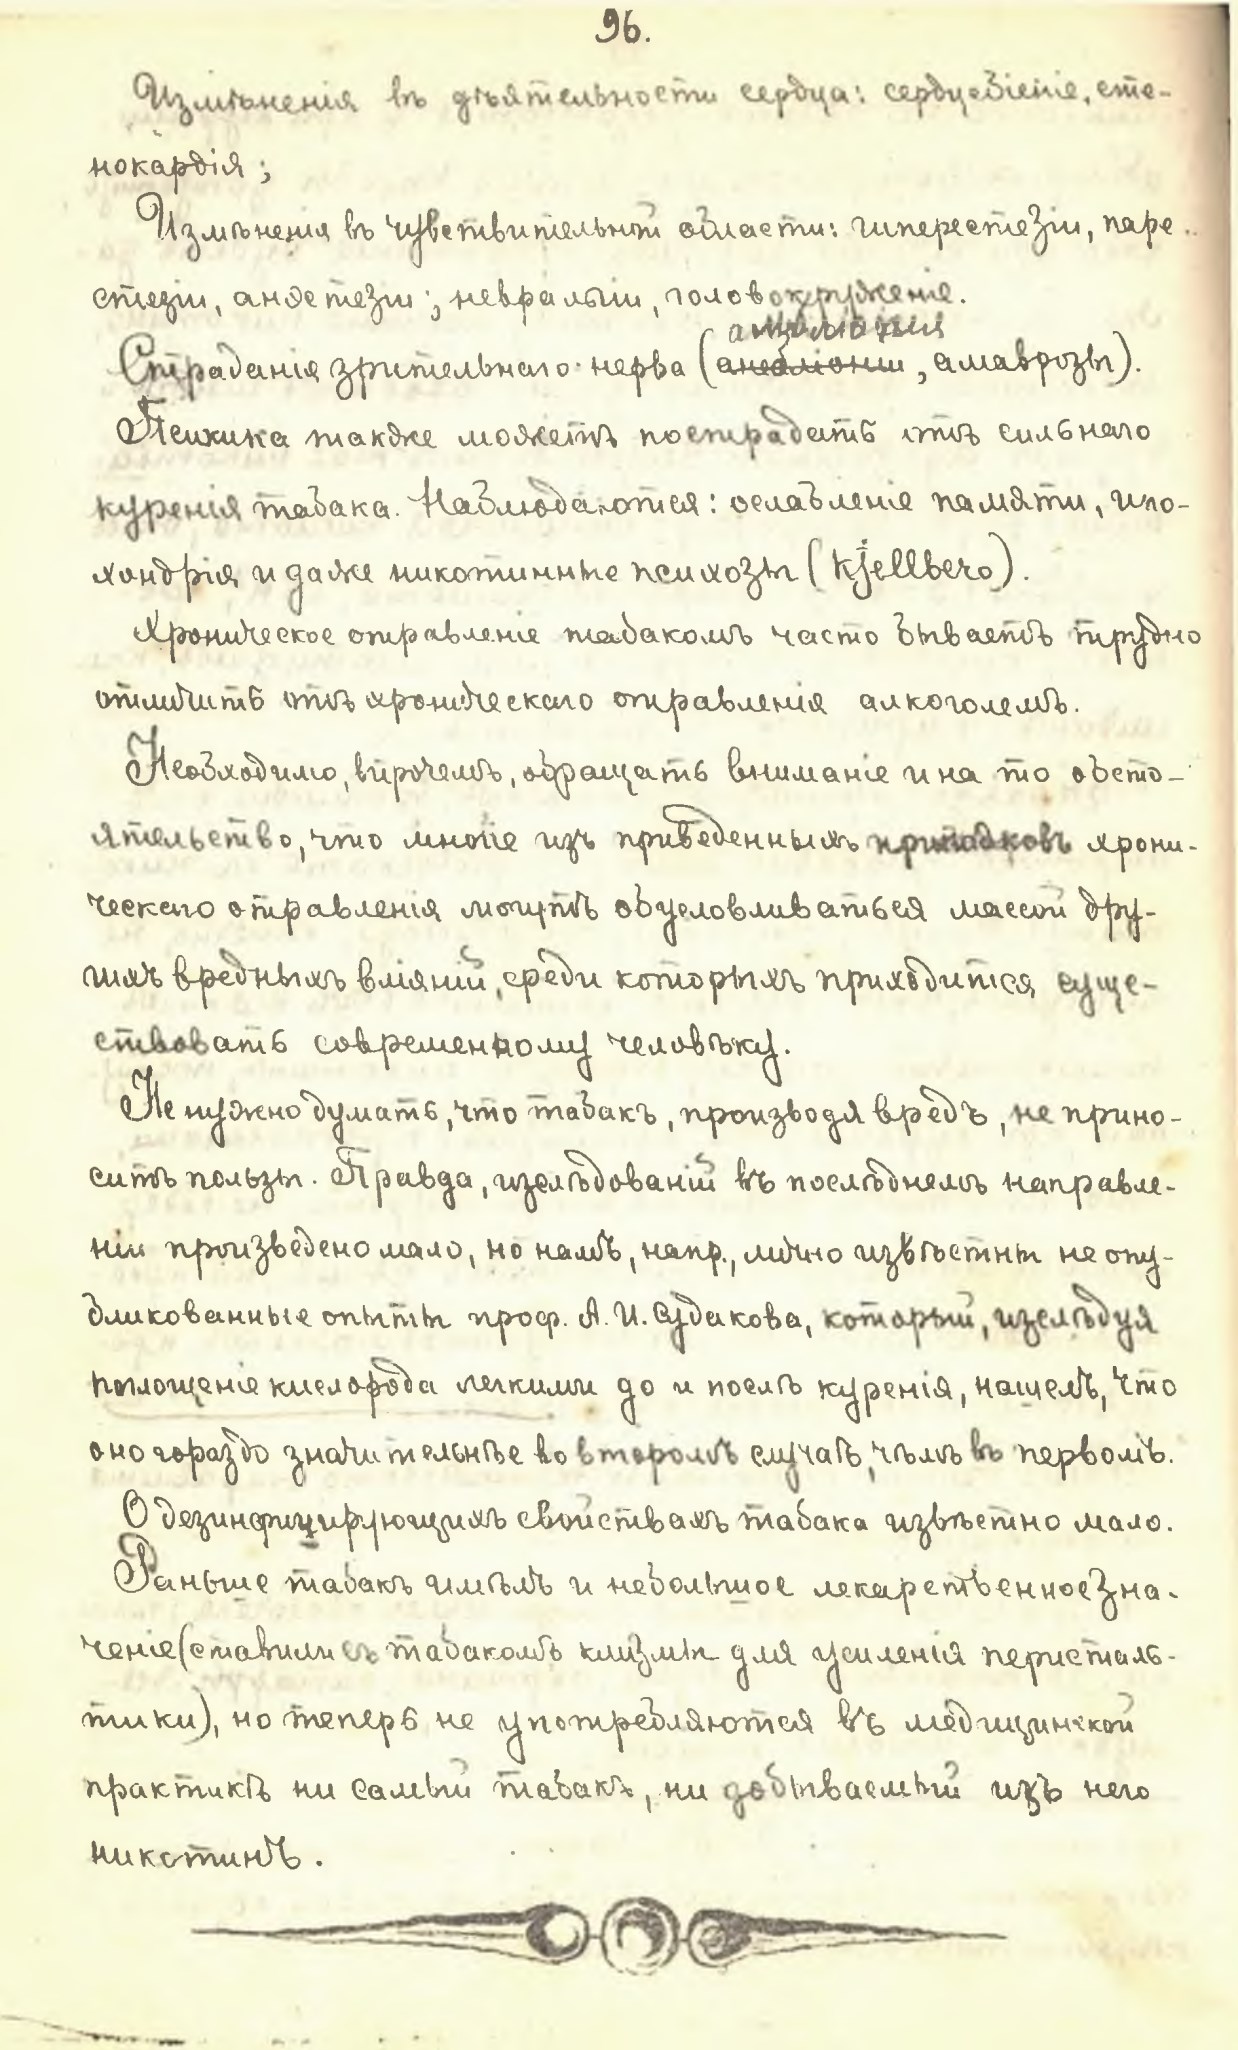 96.
Измѣненія въ дѣятельности сердца: сердцебіеніе, сте-
нокардія;
Измѣненія въ чувствительной области: гиперестезіи, паре-
стезіи, анэстезіи; невральгіи, головокруженіе.
Страданія зрительнаго нерва (, амаврозы).
Психика также можетъ пострадать отъ сильнаго
куренія табака. Наблюдаются: ослабленіе памяти, ипо-
хондрія и даже никотинные психозы (Kjellbero).
Хроническое отравленіе табакомъ часто бываетъ трудно
отличить отъ хроническаго отравленія алкоголемъ.
Необходимо, впрочемъ, обращать вниманіе и на то обсто-
ятельство, что многіе изъ приведенныхъ припадковъ хрони-
ческаго отравленія могутъ обусловливаться массой дру-
гихъ вредныхъ вліяній, среди которыхъ приходится суще-
ствовать современному человѣку.
Не нужно думать, что табакъ, производя вредъ, не прино-
ситъ пользы. Правда, изслѣдованій въ послѣднемъ направле-
ніи произведено мало, но намъ, напр., лично извѣстны не опу-
бликованные опыты проф. А. И. Судакова, который, изслѣдуя
поглощеніе кислорода легкими до и послѣ куренія, нашелъ, что
оно гораздо значительнѣе во второмъ случаѣ, чѣмъ въ первомъ.
О дезинфицирующихъ свойствахъ табака извѣстно мало.
Раньше табакъ имѣлъ и небольшое лекарственное зна-
ченіе (ставили съ табакомъ клизмы для усиленія перисталь-
тики), но теперь не употребляются въ медицинской
практикѣ ни самый табакъ, ни добываемый изъ него
никотинъ.